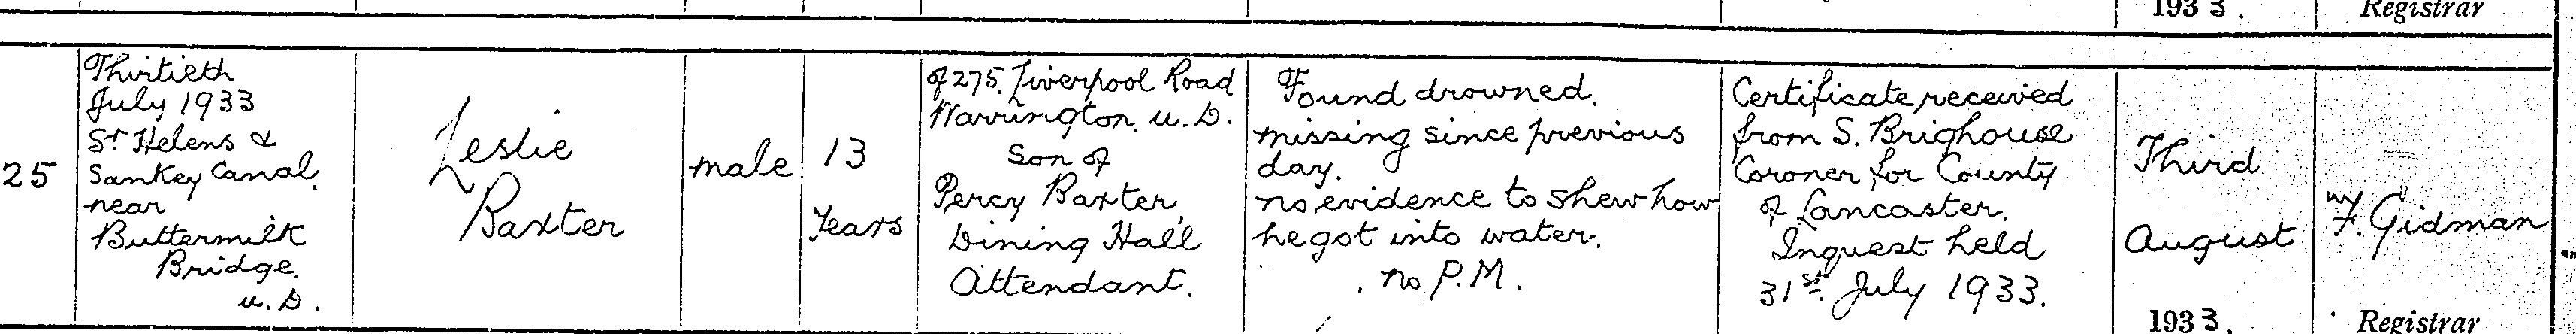 1933.
Registrar
25
Thirtieth
July 1933
St Helens &
Sankey Canal.
near
Buttermilk
Bridge.
u.D.
Leslie
Baxter
male
13
Years
of 275. Liverpool Road
Warrington. u.D.
Son of
Percy Baxter,
Dining Hall
Attendant.
Found drowned.
missing since previous
day.
no evidence to shew how
he got into water.
no P.M.
Certificate received
from S. Brighouse
Coroner for County
of Lancaster.
Inquest held
31st July 1933.
Third
August
1933.
F. Gidman
Registrar